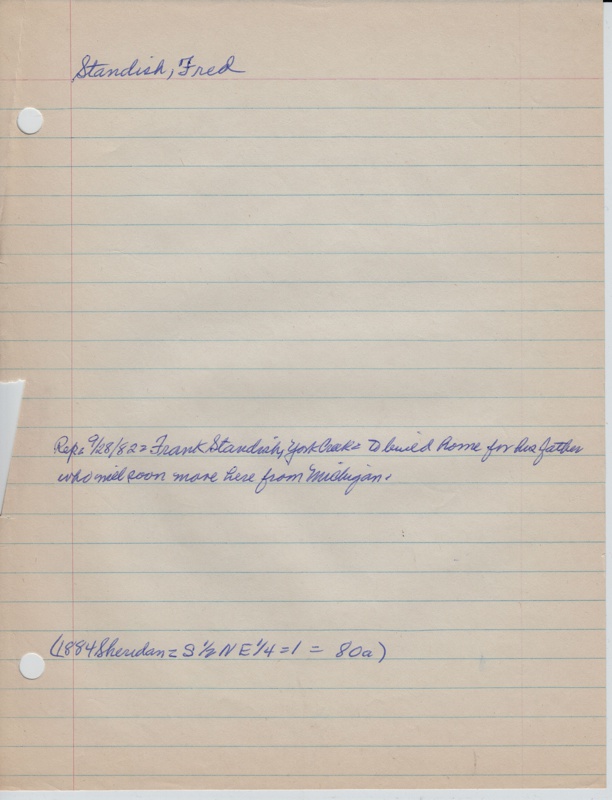 Standish, Fred
Rep: 9/28/82 = Frank Standish, York Creek = To build home for his father
who will soon move here from Michigan.
(1884 Sheridan = S 1/2 N E 1/4 = 1 = 80a)